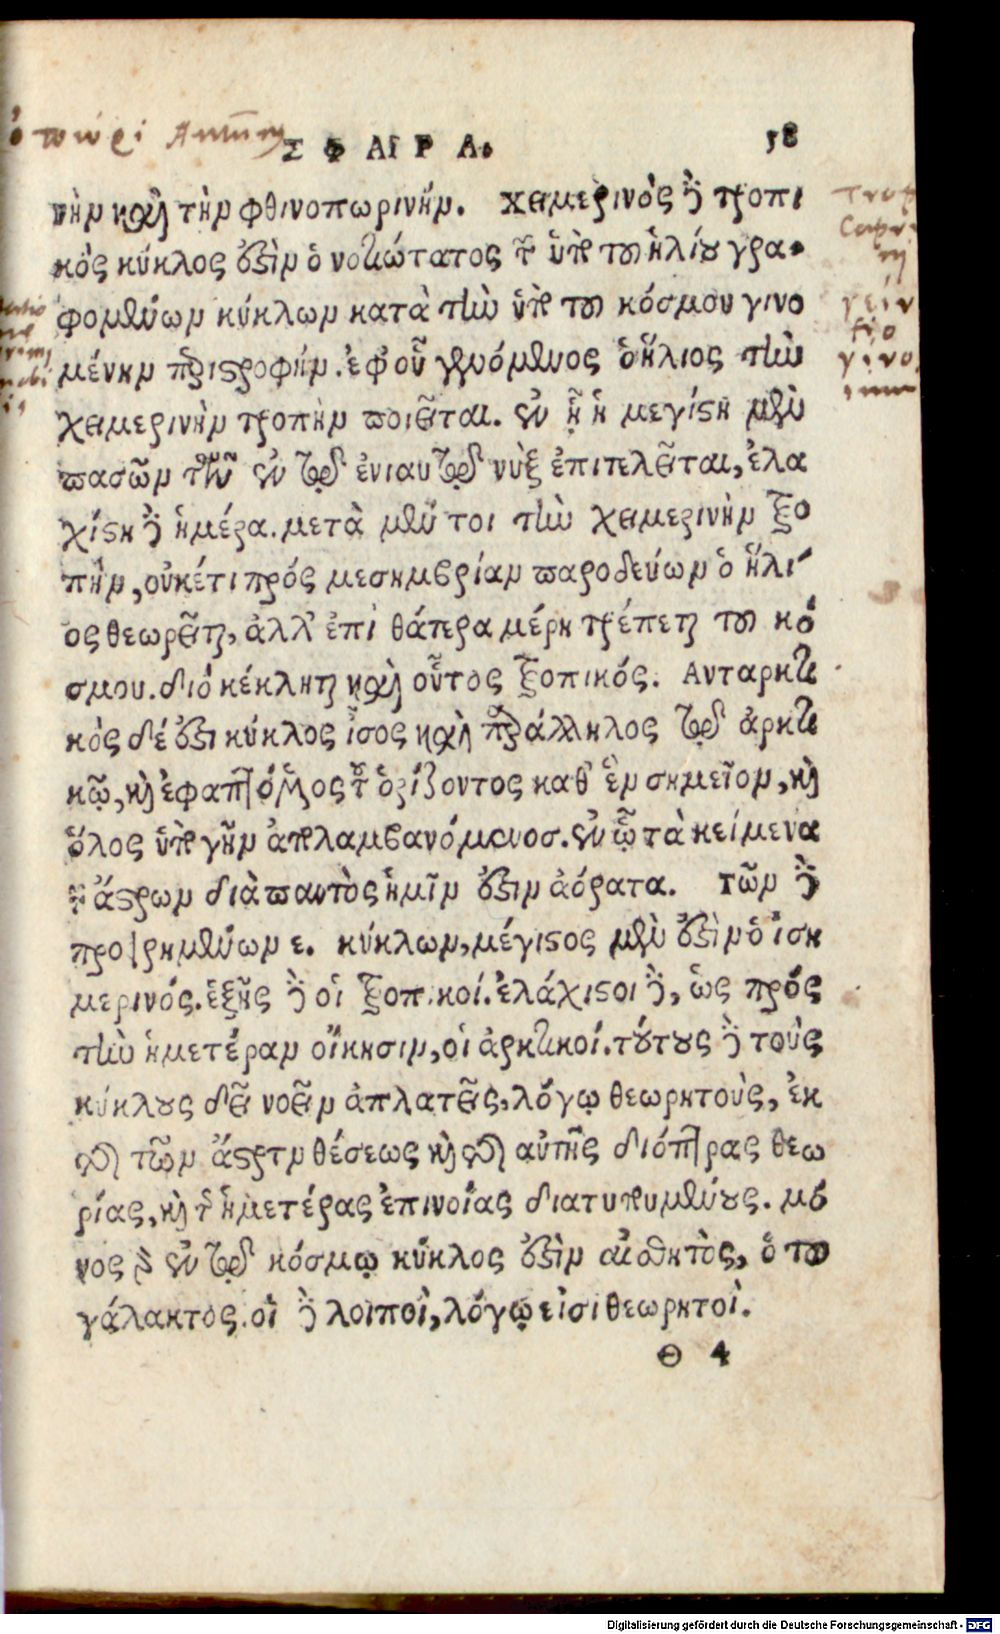 ΣΦΑΙΡΑ. 58
νὴν καὶ τὴν φθινοπωρινήν. Χειμερινὸς δὲ τροπι
κὸς κύκλος ὅστιν ὁ νοτιώτατος τῶν ὑπὸ τοῦ ἡλίου γρα-
φομένων κύκλων κατὰ τὴν ὑπὸ τοῦ κόσμου γινο
μένην περιστροφήν. ἐφ' οὗ γενόμενος ὁ ἥλιος τὴν
χειμερινὴν τροπὴν ποιεῖται. ἐν ᾗ ἡ μεγίστη μὲν
πασῶν τῶν ἐν τῷ ἐνιαυτῷ νὺξ ἐπιτελεῖται, ἐλα
χίστη δὲ ἡμέρα. μετὰ μέν τοι τὴν χειμερινὴν τρο
πὴν, οὐκέτι πρός μεσημβρίαν παροδεύων ὁ ἥλι-
ος θεωρεῖται, ἀλλ' ἐπὶ θάτερα μέρη τρέπεται τοῦ κό
σμου. διό κέκληται καὶ οὗτος τροπικός. Ανταρκτι
κὸς δέ ἐστι κύκλος ἴσος καὶ παράλληλος τῷ ἀρκτι
κῷ, καὶ ἐφαπτόμενος τοῦ ὁρίζοντος καθ' ἓν σημεῖον, καὶ
ὅλος ὑπὸ γῆν ἀπολαμβανόμενος. ἐν ᾧ τὰ κείμενα
τῶν ἄστρων διὰ παντὸς ἡμῖν ἐστιν ἀόρατα. Τῶν δὲ
προειρημένων ε. κύκλων, μέγιστος μὲν ἐστὶν ὁ ἰση
μερινός. ἑξῆς δὲ οἱ τροπικοί. ἐλάχιστοι δὲ, ὡς πρός
τὴν ἡμετέραν οἴκησιν, οἱ ἀρκτικοί. τούτους δὲ τοὺς
κύκλους δεῖ νοεῖν ἀπλατεῖς, λόγῳ θεωρητοὺς, ἐκ
τῆς τῶν ἄστρων θέσεως καὶ τῆς αὐτῆς διόπτρας θεω
ρίας, καὶ τῆς ἡμετέρας ἐπινοίας διατυπουμένους. μό
νος γὰρ ἐν τῷ κόσμῳ κύκλος ἐστὶν αἰσθητὸς, ὁ τοῦ
γάλακτος. οἱ δὲ λοιποὶ, λόγῳ εἰσι θεωρητοὶ.
Θ 4
Digitalisierung gefördert durch die Deutsche Forschungsgemeinschaft - DFG